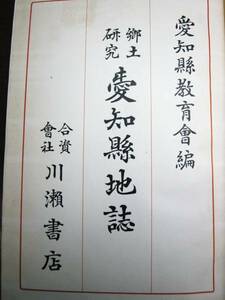 愛知縣教育會編
郷土研究 愛知縣地誌
合資會社 川瀬書店